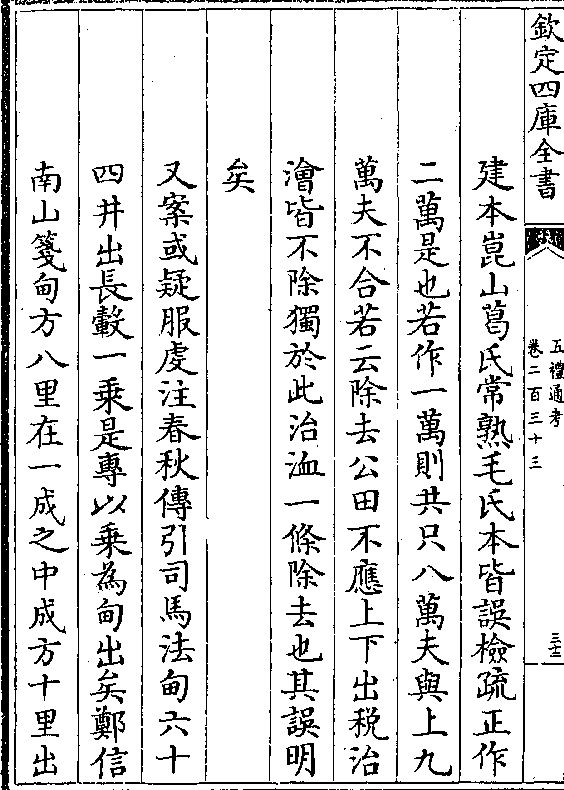 欽定四庫全書
五禮通考
卷二百三十三
建本崑山葛氏常熟毛氏本皆誤檢疏正作
二萬是也若作一萬則共只八萬夫與上九
萬夫不合若云除去公田不應上下出稅治
澮皆不除獨於此治洫一條除去也其誤明
矣
又案或疑服虔注春秋傳引司馬法甸六十
四井出長轂一乘是專以乘為甸出矣鄭信
南山箋甸方八里在一成之中成方十里出